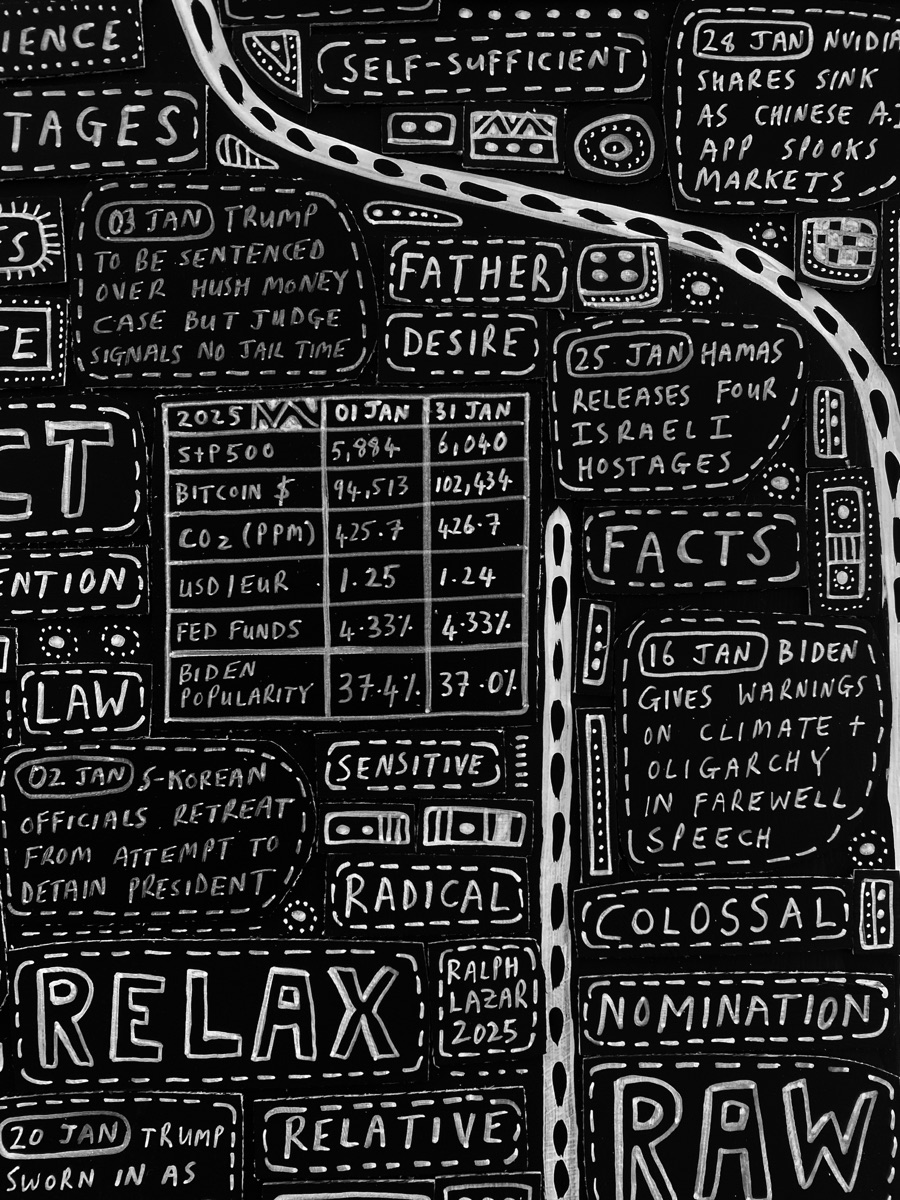 IENCE
SELF-SUFFICIENT
28 JAN NVIDIA
SHARES SINK
AS CHINESE A.I
APP SPOOKS
MARKETS
TAGES
03 JAN TRUMP
TO BE SENTENCED
OVER HUSH MONEY
CASE BUT JUDGE
SIGNALS NO JAIL TIME
S
E
FATHER
DESIRE
25 JAN HAMAS
RELEASES FOUR
ISRAELI
HOSTAGES
CT
2025 01 JAN 31 JAN
S+P500 5,884 6,040
BITCOIN $ 94,513 102,434
CO2 (PPM) 425.7 426.7
USD/EUR 1.25 1.24
FED FUNDS 4.33% 4.33%
BIDEN
POPULARITY 37.4% 37.0%
FACTS
NTION
LAW
16 JAN BIDEN
GIVES WARNINGS
ON CLIMATE +
OLIGARCHY
IN FAREWELL
SPEECH
02 JAN S-KOREAN
OFFICIALS RETREAT
FROM ATTEMPT TO
DETAIN PRESIDENT
SENSITIVE
RADICAL
COLOSSAL
RELAX
RALPH
LAZAR
2025
NOMINATION
20 JAN TRUMP
SWORN IN AS
RELATIVE
RAW